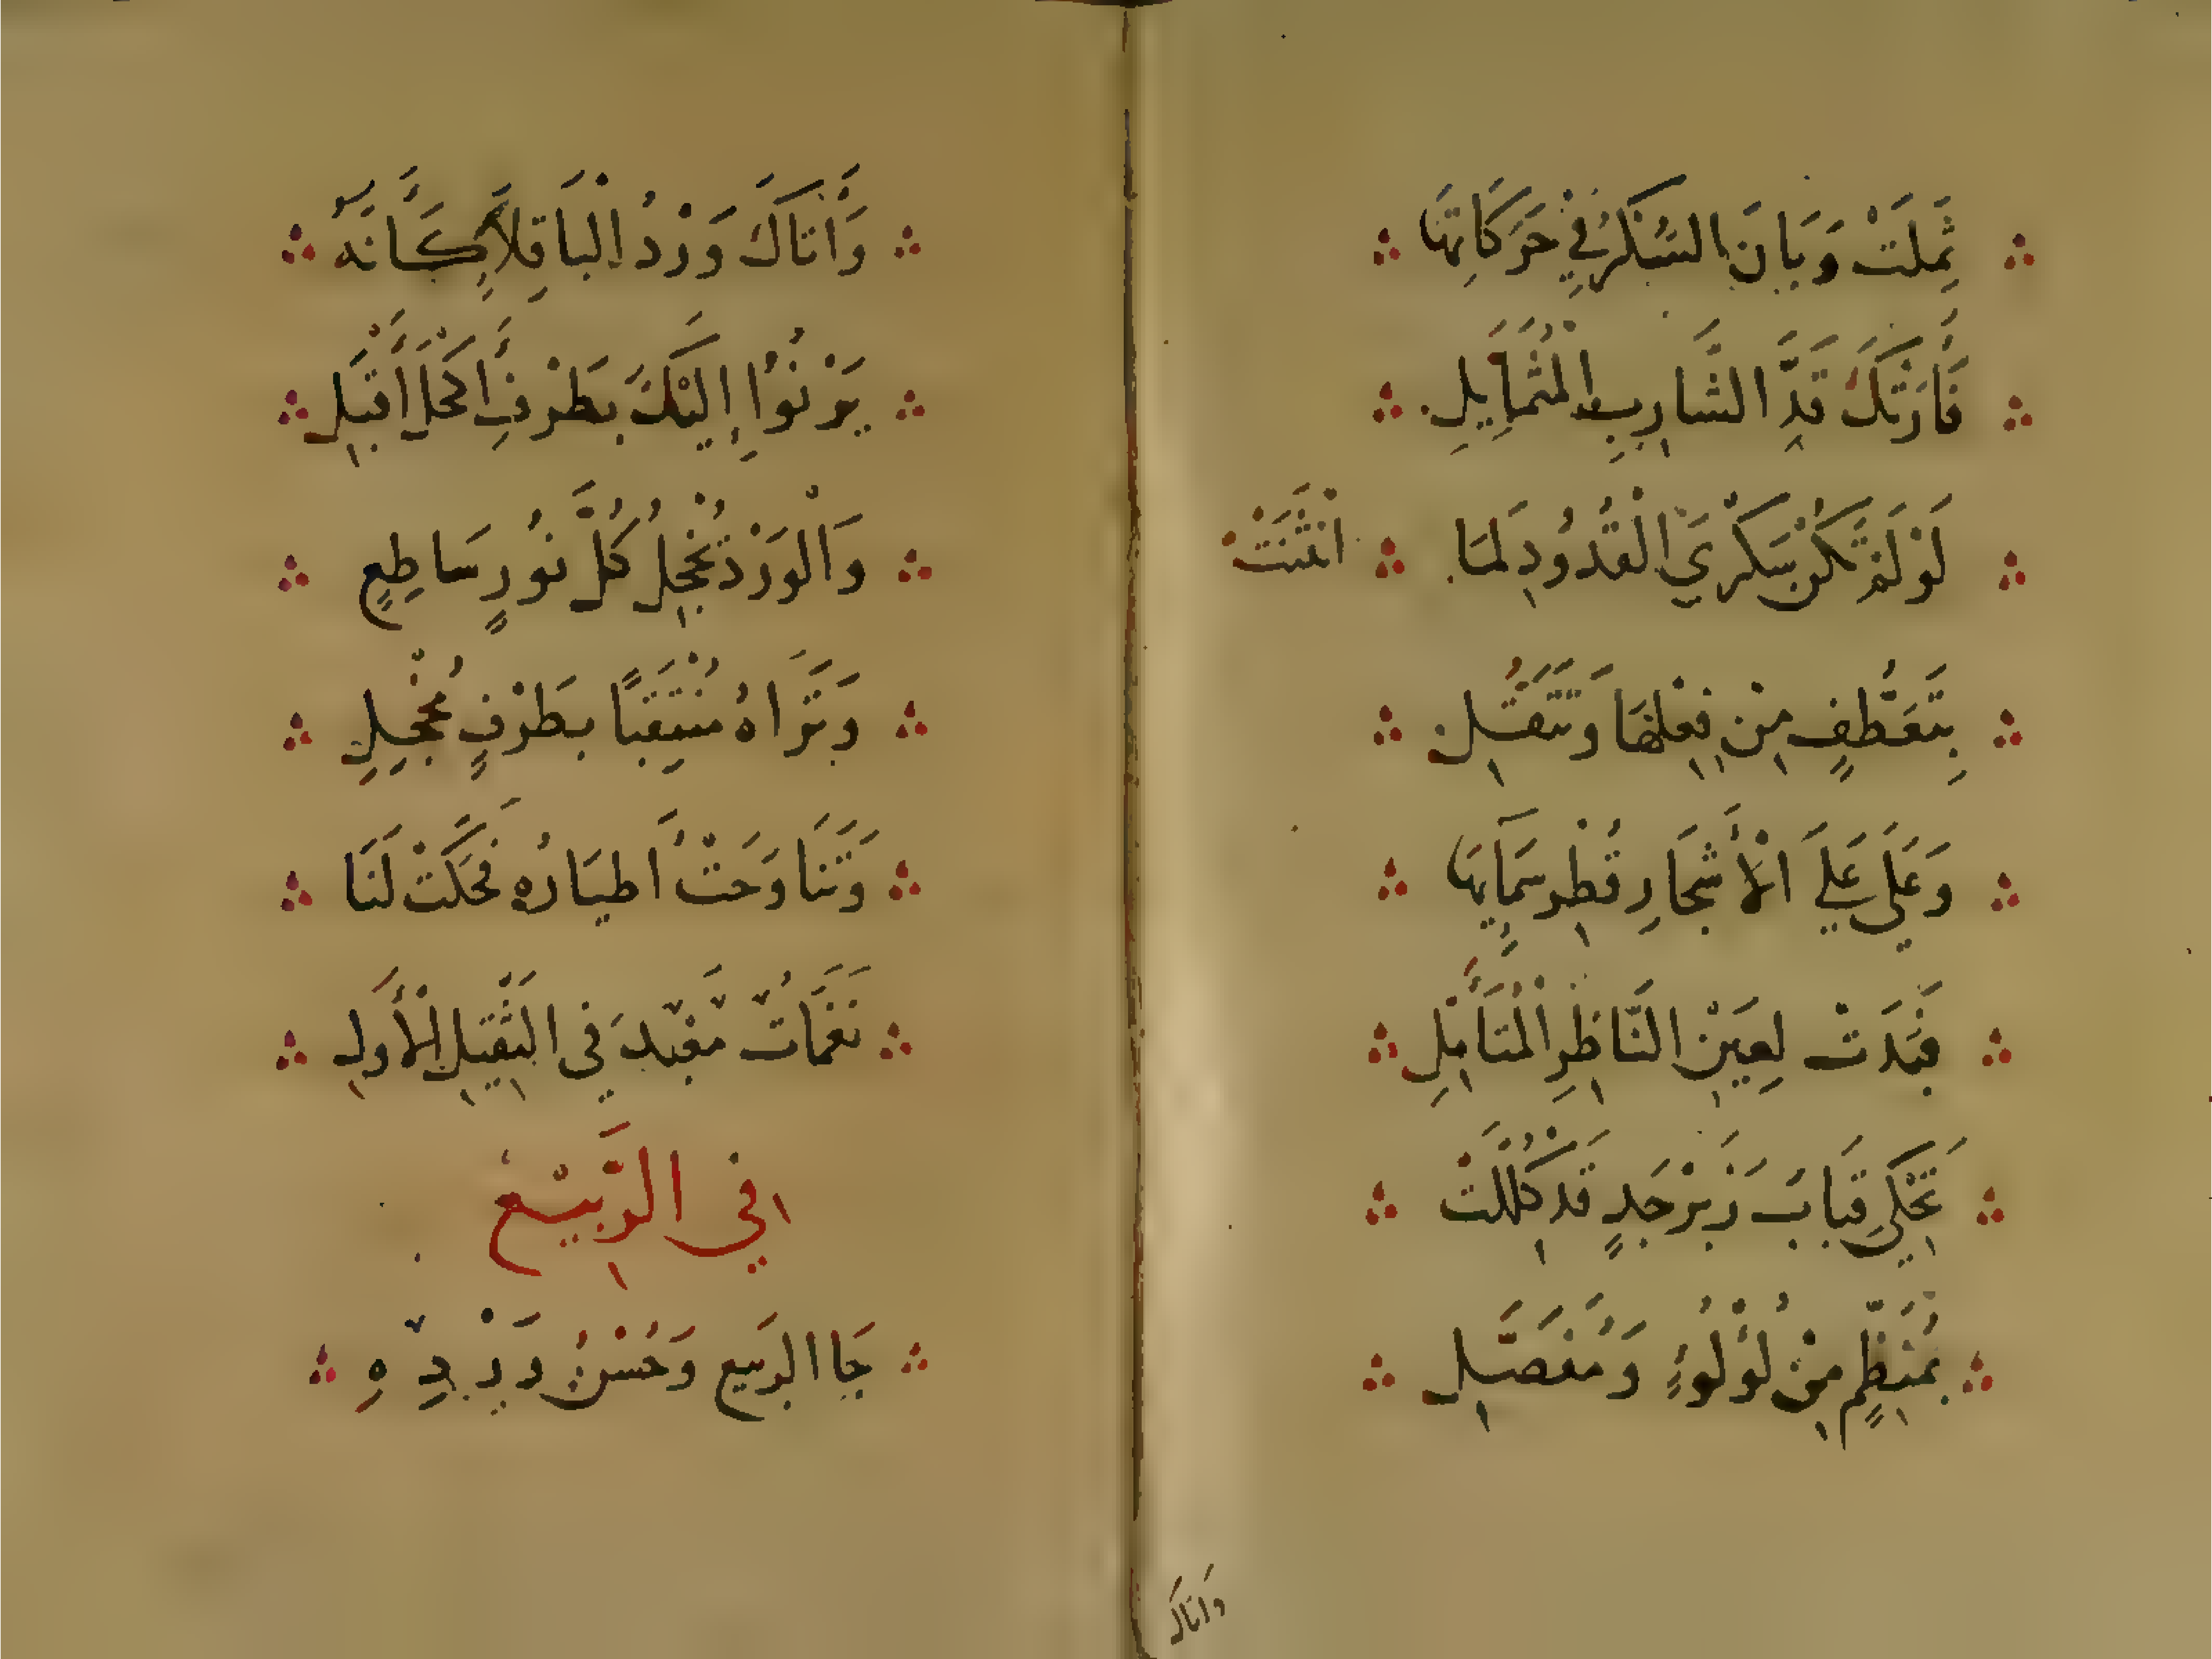 ثَمِلَتْ وَبَانَ السُّكْرُ فِي حَرَكَاتِهَا
فَأَرَتْكَ قَدَّ الشَّارِبِ الْمُتَمَايِلِ
لَوْ لَمْ تَكُنْ سَكْرَي الْقُدُودِ لَمَا انْثَنَتْ
بِتَعَطُّفٍ مِنْ فِعْلِهَا وَتَفَتُّلِ
وَعَلَي عَلَي الْأَشْجَارِ قُطْر سَمَايِهَا
فَبَدَتْ لِعَيْنِ النَّاظِرِ الْمُتَأَمِّلِ
تَحْكِي قِبَابَ زَبَرْجَدٍ قَد كُلِّلَتْ
بِمُنَظَّمٍ مِنْ لُؤْلُوءٍ وَمُفَصَّلِ
وَاتاك
وَأَتَاكَ وَرْدُ الْبَاقِلَّا كَأَنَّهُ
يَرْنُوا إِلَيْكَ بِطَرْفِ أَكْحَل أَقْبَلِ
وَالْوَرْدُ يُخْجِلُ كُلَّ نُورٍ سَاطِعٍ
وَتَرَاهُ مُنْتَقِبًا بِطَرْفٍ مُخْجِلِ
وَتَنَاوَحَتْ أَطيَارُهُ فَحَكَتْ لَنَا
نَغَمَاتُ مَعْبَدَ فِي الثَّقِيلِ الْأَوَلِ
فِي الرَّبِيعِ
جَا الرَبيع وَحُسْنُ وَرْدِهِ